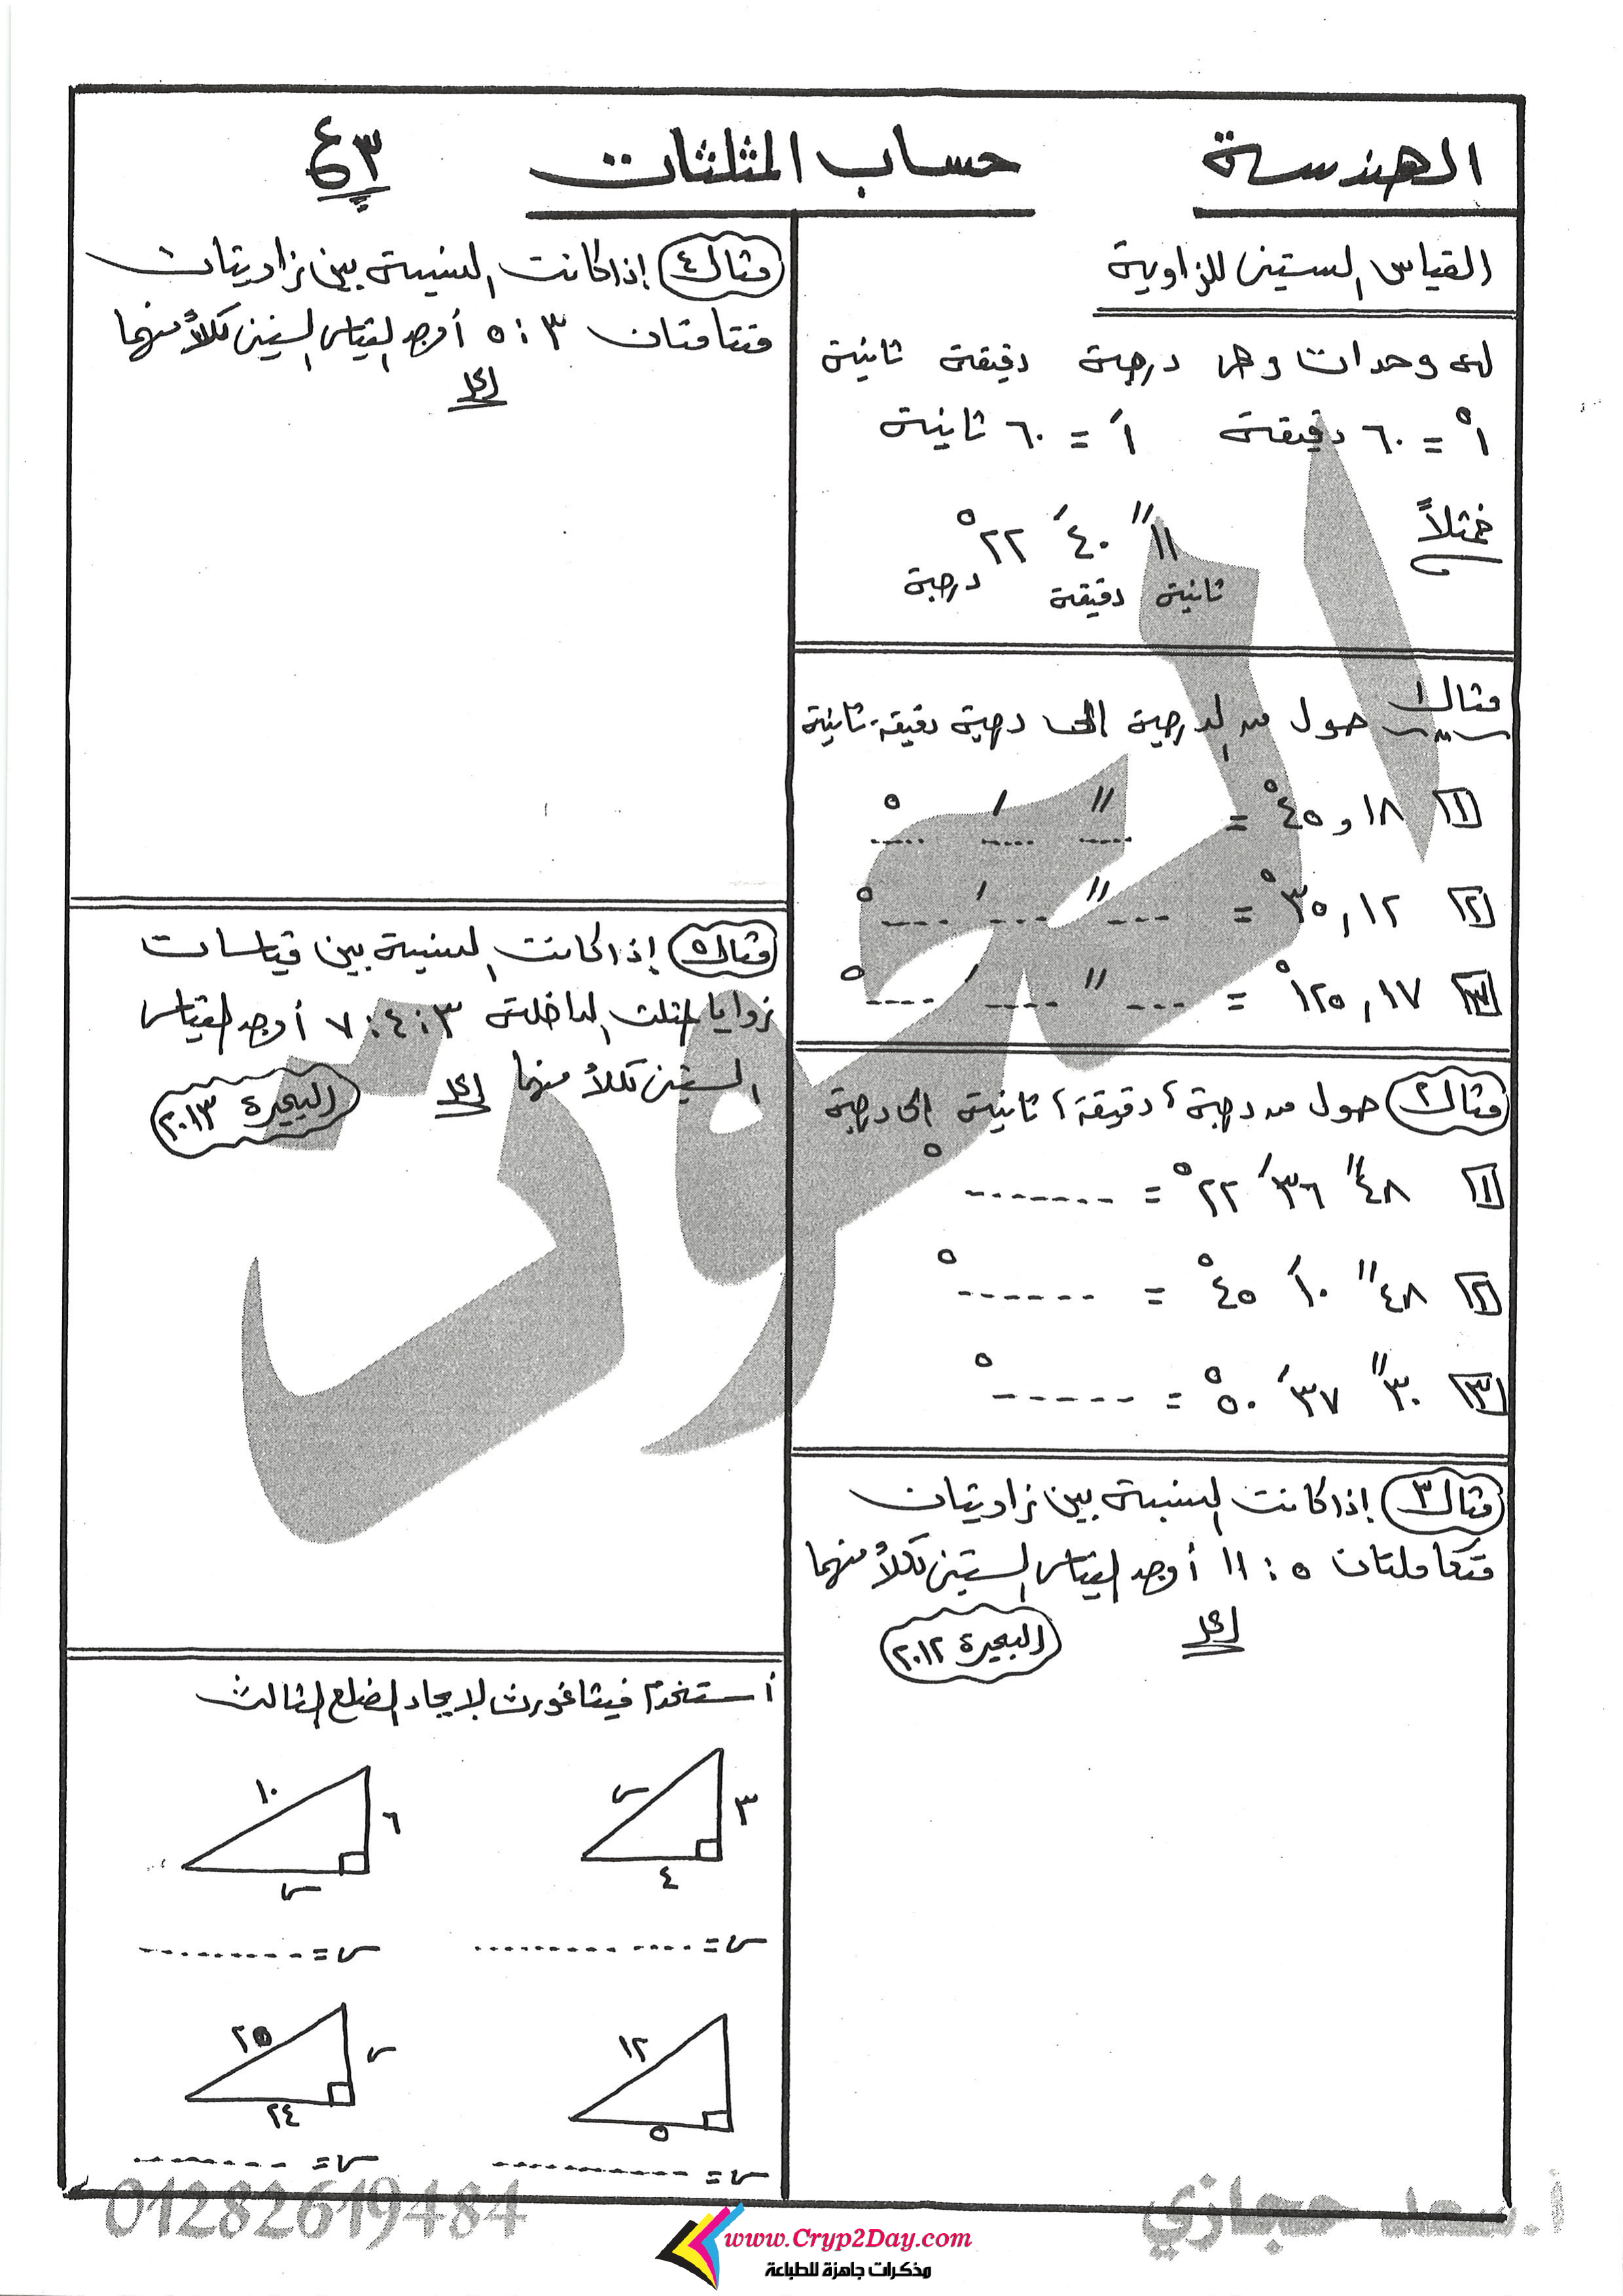 الهندسة
حساب المثلثات
٣ ع
القياس الستينى للزاوية
له وحدات وهى درجة دقيقة ثانية
١° = ٦٠ دقيقة ١َ = ٦٠ ثانية
فمثلاً
١١ً ٤٠َ ٢٢°
ثانية دقيقة درجة
مثال١ حول من الدرجة الى درجة دقيقة ثانية
١ ١٨و٤٥° = .... ً .... َ .... °
٢ ١٢,٣٥° = ---- ً ---- َ ---- °
٣ ١٧,١٢٥° = ---- ً ---- َ ---- °
مثال٢ حول من درجة، دقيقة، ثانية الى درجة
١ ٤٨ً ٣٦َ ٢٢° = ------- °
٢ ٤٨ً ١٠َ ٤٥° = ------ °
٣ ٣٠ً ٣٧َ ٥٠° = ------ °
مثال٣ إذا كانت النسبة بين زاويتان
متكاملتان ٥ : ١١ أوجد القياس الستينى لكلاً منهما
الحل
البحيرة ٢٠١٢
مثال٤ إذا كانت النسبة بين زاويتان
متتامتان ٣ : ٥ أوجد القياس الستينى لكلاً منهما
الحل
مثال٥ إذا كانت النسبة بين قياسات
زوايا مثلث الداخلة ٣ : ٤ : ٧ أوجد القياس
الستينى لكلاً منهما الحل
البحيرة ٢٠١٣
أستخدم فيثاغورث لإيجاد الضلع الثالث
س ٣ ٤
١٠ ٦ س
س = ................
س = ............
١٢ ٥
٢٥ س ٢٤
س = ................
س = ............
العون
أ.سعد حجازي
01282619484
www.Cryp2Day.com
مذكرات جاهزة للطباعة